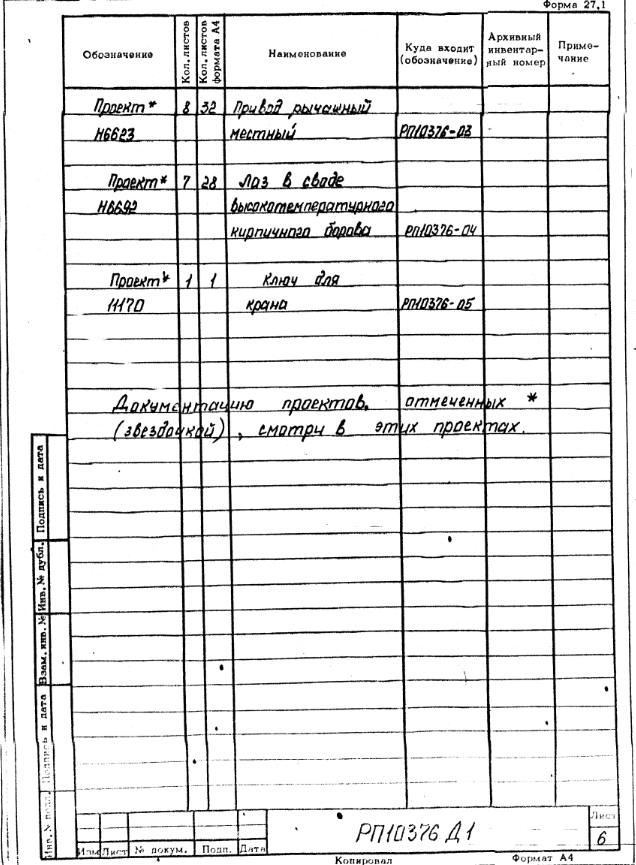 Форма 27,1
Обозначение Кол. листов Кол. листов формата А4 Наименование Куда входит (обозначение) Архивный инвентарный номер Примечание
Проект* 8 32 Привод рычажный
Н6623 местный РП10376-03
Проект* 7 28 Лаз в своде
Н6692 высокотемпературного
кирпичного борова РП10376-04
Проект* 1 1 Ключ для
11170 крана РП10376-05
Документацию проектов, отмеченных *
(звездочкой), смотри в этих проектах.
Подпись и дата
Инв. № дубл.
Взам. инв. №
Подпись и дата
Инв. № подл.
Изм Лист № докум. Подп. Дата
РП10376 Д1
Лист
6
Копировал Формат А4